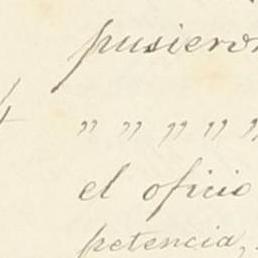 pusieron
" " " " "
el oficio
petencia,